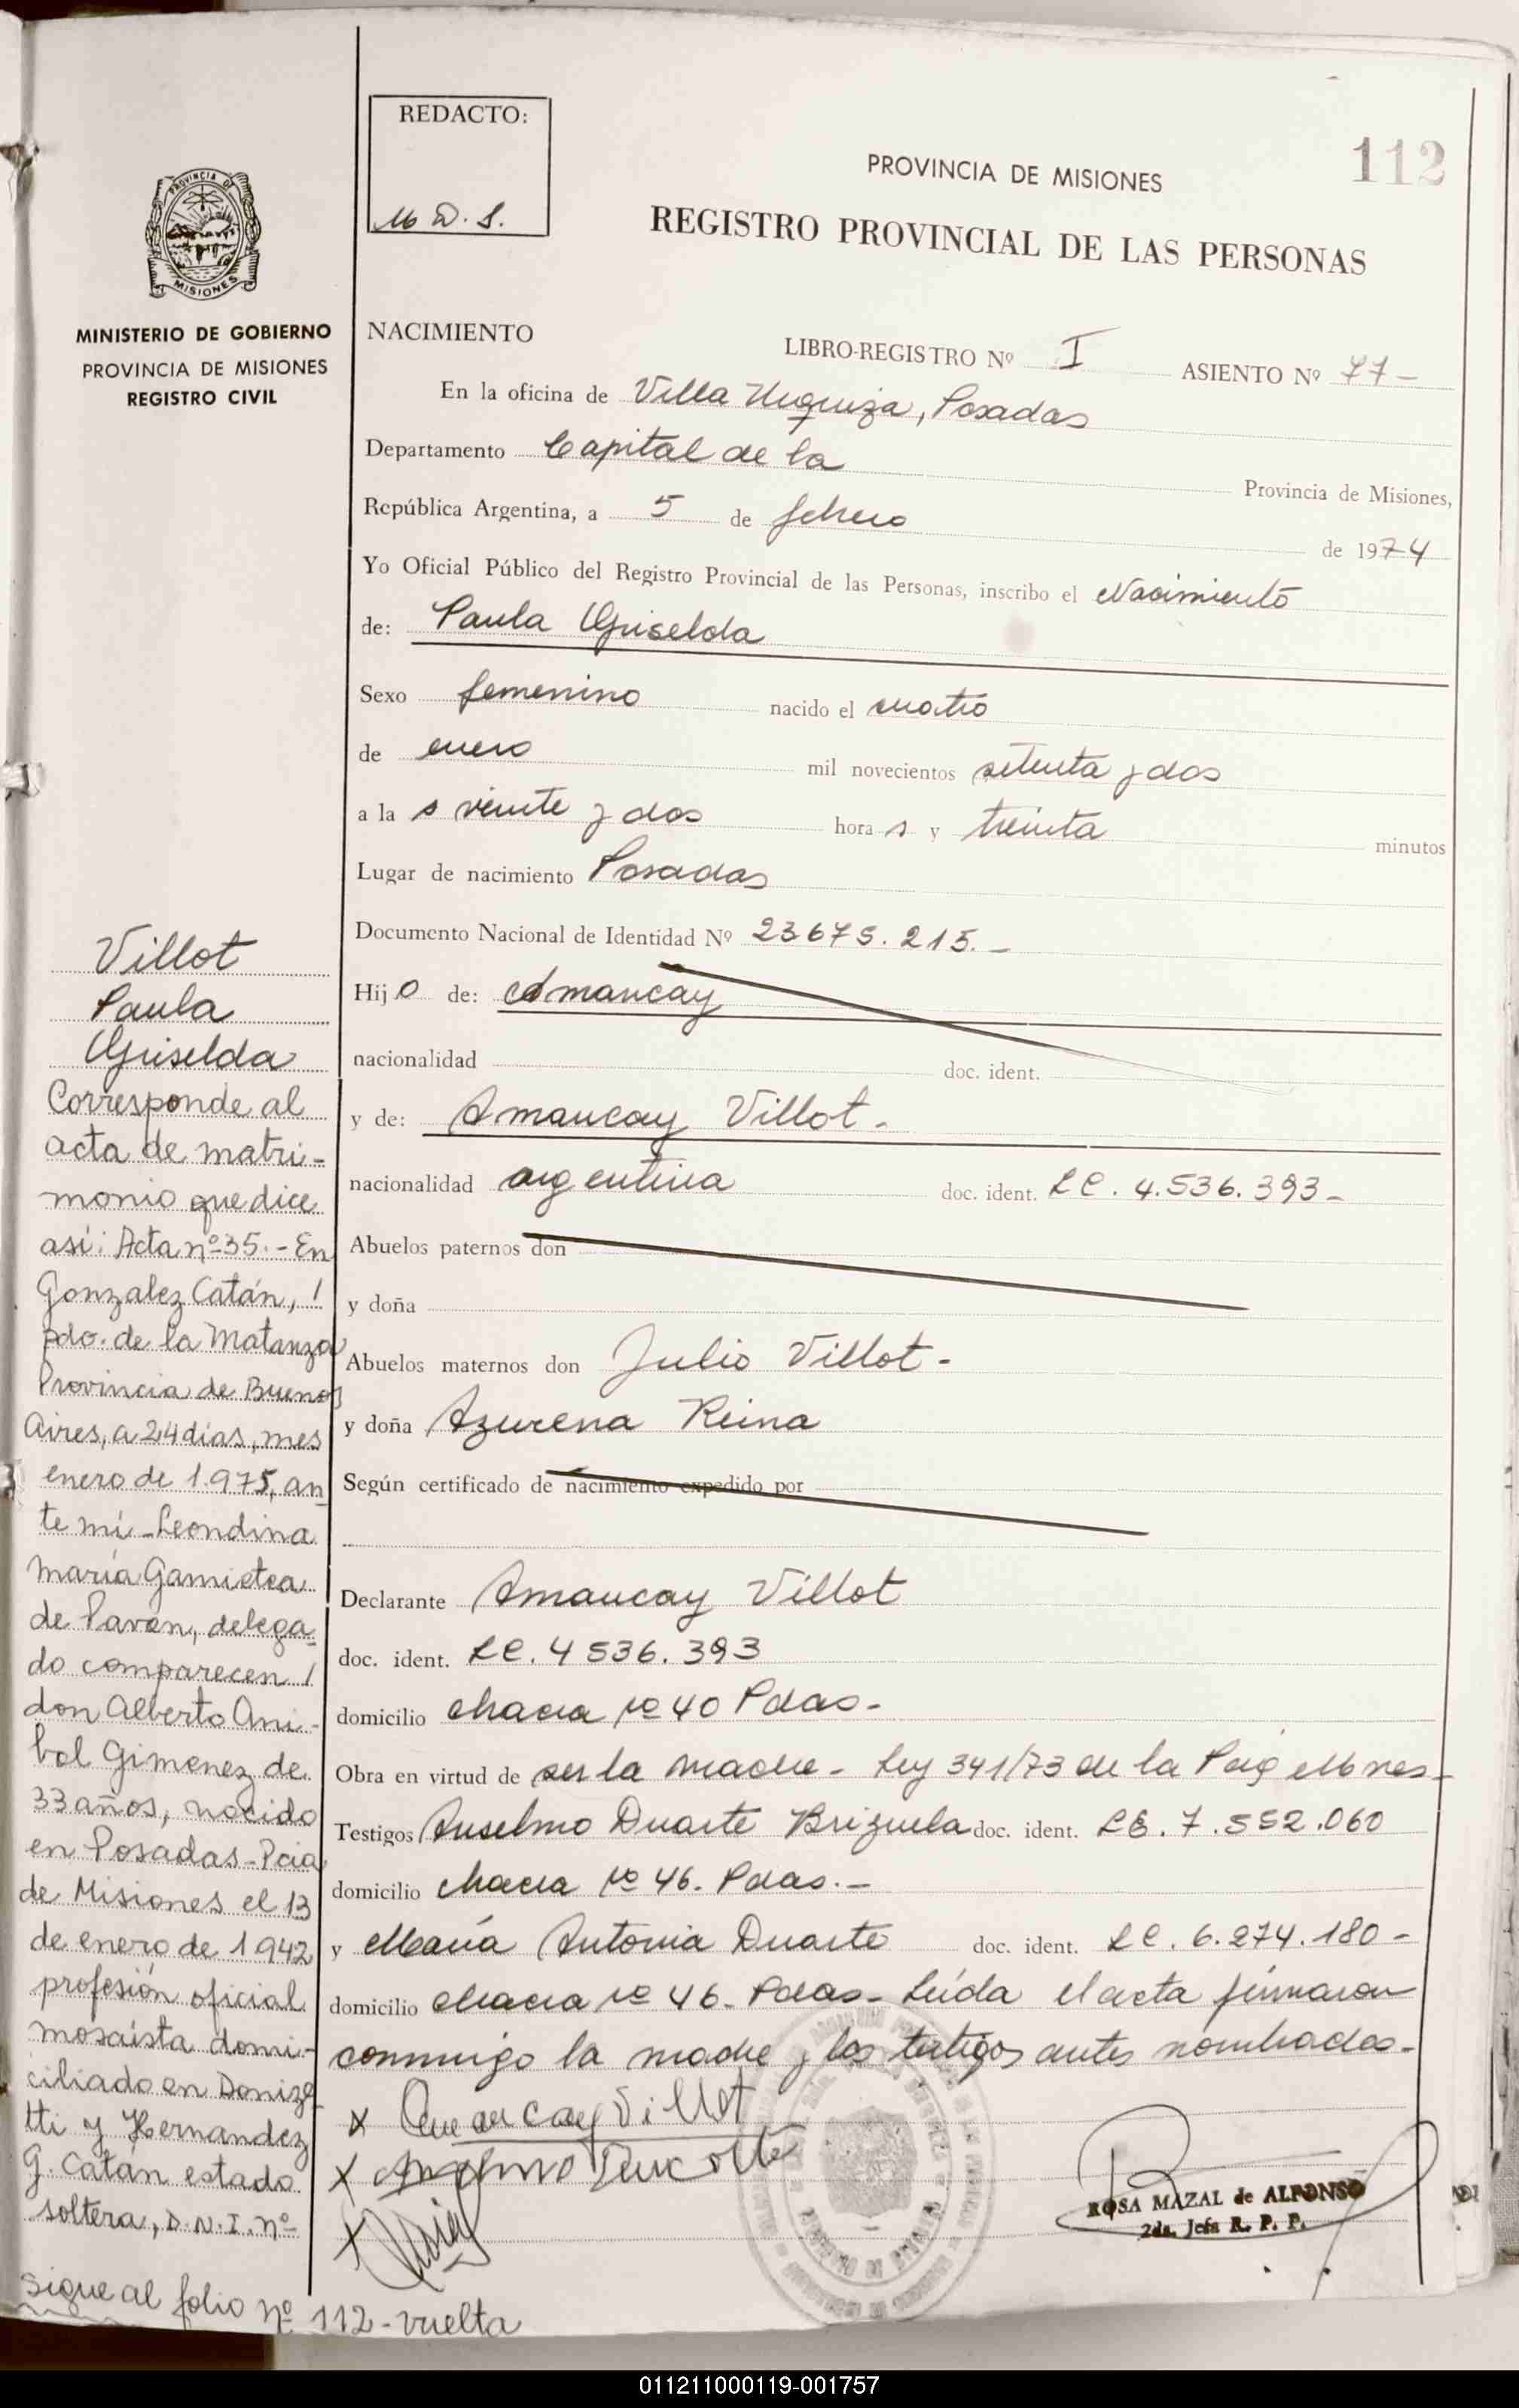 REDACTO:
M D. S.
112
PROVINCIA DE MISIONES
REGISTRO PROVINCIAL DE LAS PERSONAS
PROVINCIA DE
MISIONES
MINISTERIO DE GOBIERNO
PROVINCIA DE MISIONES
REGISTRO CIVIL
NACIMIENTO
LIBRO-REGISTRO Nº I ASIENTO Nº 77-
En la oficina de Villa Urquiza, Posadas
Departamento Capital de la Provincia de Misiones,
República Argentina, a 5 de febrero de 1974
Yo Oficial Público del Registro Provincial de las Personas, inscribo el Nacimiento
de: Paula Griselda
Sexo femenino nacido el cuatro
de enero mil novecientos setenta y dos
a la s veinte y dos hora s y treinta minutos
Lugar de nacimiento Posadas
Documento Nacional de Identidad Nº 23675.215.-
Hijo de: Amancay
nacionalidad doc. ident.
y de: Amancay Villot-
nacionalidad argentina doc. ident. LC. 4.536.393-
Abuelos paternos don
y doña
Abuelos maternos don Julio Villot-
y doña Azucena Reina
Según certificado de nacimiento expedido por
Declarante Amancay Villot
doc. ident. LC. 4 536.393
domicilio chacra Nº 40 Pdas-
Obra en virtud de ser la madre- Ley 341/73 de la Mnes-
Testigos Anselmo Duarte Brizuela doc. ident. LE. 7.552.060
domicilio chacra Nº 46. Pdas.-
y María Antonia Duarte doc. ident. LC. 6.274.180-
domicilio chacra Nº 46- Pdas- Leída el acta firmaron
conmigo la madre y los testigos antes nombrados-
x Amancay Villot
x Anselmo
x
ROSA MAZAL de ALFONSO
2da. Jefa R. P. P.
Villot
Paula
Griselda
Corresponde al
acta de matri-
monio que dice
así: Acta nº 35.- En
Gonzalez Catán, /
pdo. de la Matanza
Provincia de Buenos
Aires, a 24 dias, mes
enero de 1.975, an
te mí - Leondina
María
de Pavón, delega-
do comparecen /
don Alberto Aní-
bal Gimenez de
33 años, nacido
en Posadas - Pcia
de Misiones el 13
de enero de 1942
profesión oficial
mosaísta domi-
ciliado en Donize
tti y Hernandez
G. Catán estado
soltera, D.N.I. nº
sigue al folio nº 112-vuelta
011211000119-001757